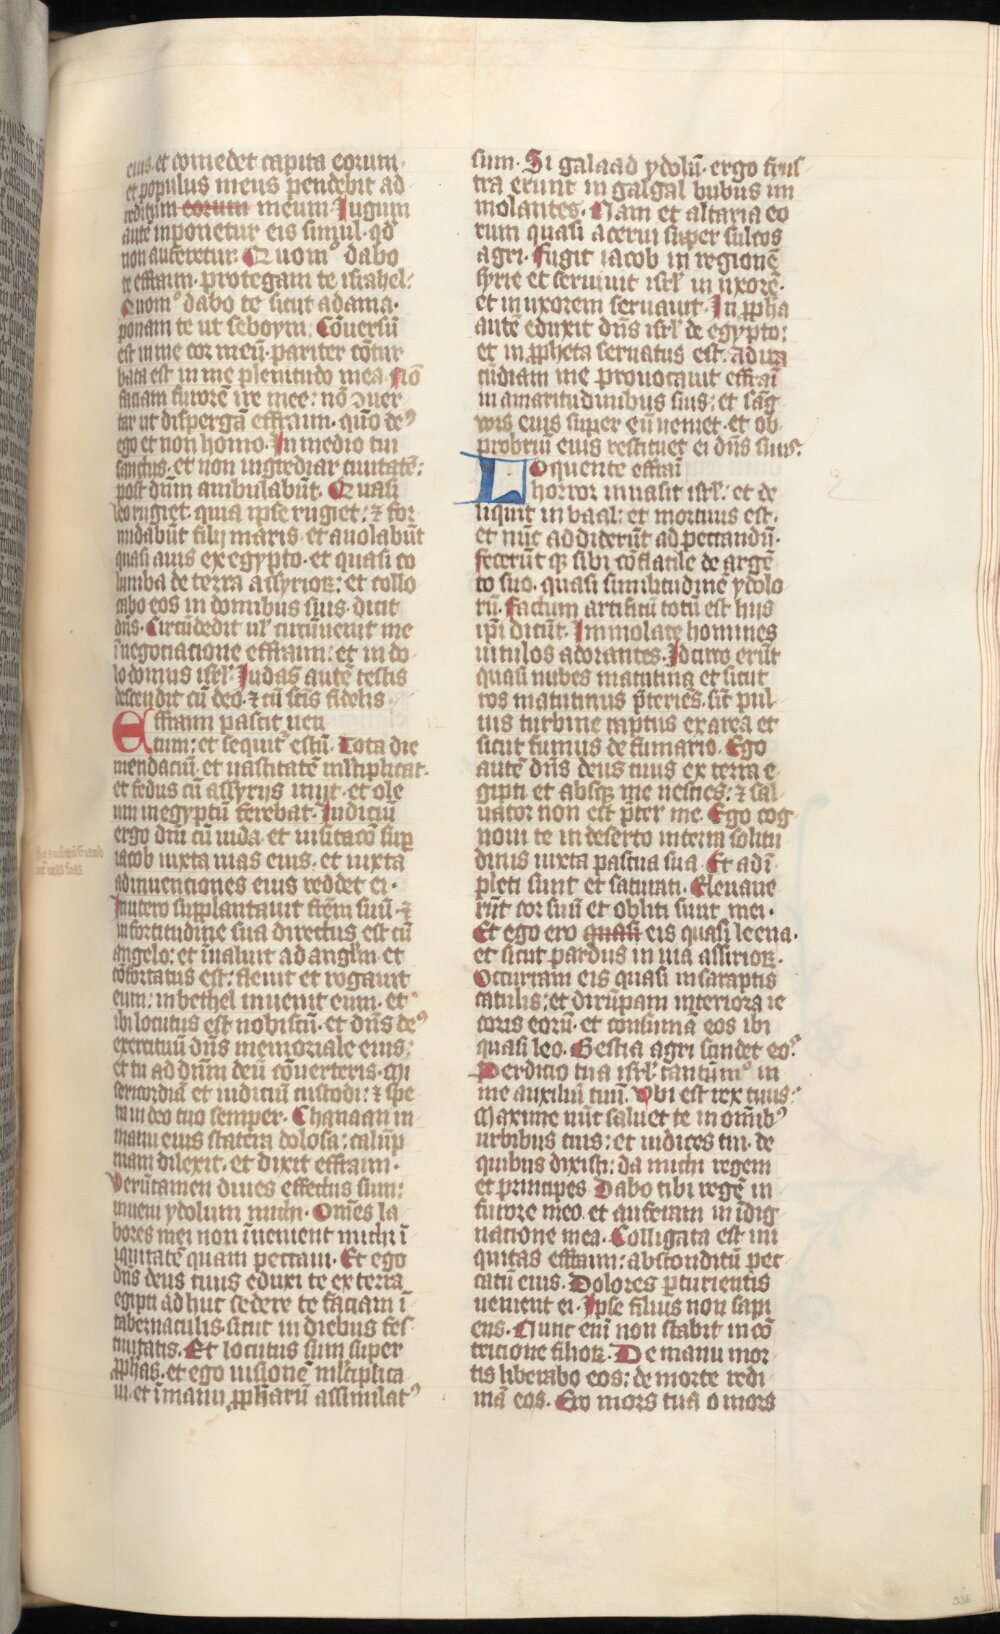 eius. et comedet capita eorum.
et populus meus pendebit ad
reditum eorum meum. Iugum
autē inponetur eis simul. qḋ
non auferetur. Quom° dabo
te effraim. protegam te israhel:
Quom° dabo te sicut adama.
ponam te ut seboym. Cōuersū
est in me cor meū. pariter cōtur
bata est in me plenitudo mea. Nō
faciam furorē ire mee: nō ꝯuer
tar ut dispergā effraim. quō deꝰ
ego et non homo. In medio tui
sanctus. et non ingrediar ciuitatē:
post dn̄m ambulabūt. Quasi
leo rugiet. quia ipse rugiet: ⁊ for
midabūt filij maris. et auolabūt
quasi auis ex egypto. et quasi co
lumba de terra assyrioꝝ: et collo
cabo eos in domibus suis. dicit
dn̄s. Circūdedit ul' circūuenit me
ī negociatione effraim: et in do
lo domus isrl'. Iudas autē testis
descendit cū deo. ⁊ cū sc̄is fidelis.
Effraim pascit uen
tum: et sequit' estū. Tota die
mendaciū. et uastitatē ml'tiplicat.
et fedus cū assyrijs iniit. et ole
um in egyptū ferebat. Iudiciū
ergo dn̄i cū iuda. et uisitacō sup̄
iacob iuxta uias eius. et iuxta
adinuenciones eius reddet ei.
In utero supplantauit fr̄em suū. ⁊
in fortitudine sua directus est cū
angelo: et īualuit ad angl'm et
cōfortatus est: fleuit et rogauit
eum: in bethel inuenit eum. et
ibi locutus est nobiscū. et dn̄s deꝰ
exercituū dn̄s memoriale eius:
et tu ad dn̄m deū cōuerteris. Mi
sericordiā et iudiciū custodi: ⁊ spe
ra in deo tuo semper. Chanaan in
manu eius statera dolosa: calūp
niam dilexit. et dixit effraim.
Verūtamen diues effectus sum:
inueni ydolum michi. Om̄es la
bores mei non īuenient michi ī
iquitatē quam peccaui. Et ego
dn̄s deus tuus eduxi te ex terra
egipti ad huc sedere te faciam ī
tabernaculis. sicut in diebus fes
tiuitatis. Et locutus sum super
ꝓphas. et ego uisionē ml'tiplica
ui. et ī manu ꝓpharū assimilatꝰ
sum. Si galaad ydolū. ergo frus
tra erunt in galgal bubus im
molantes. Nam et altaria eo
rum quasi acerui super sulcos
agri. Fugit iacob in regionē
syrie et seruiuit isrl' in uxorē.
et in uxorem seruauit. In ꝓpha
autē eduxit dn̄s isrl' de egypto:
et in ꝓpheta seruatus est. Ad ira
cūdiam me prouocauit effrai
in amaritudinibus suis: et sāg
wis eius super eū ueniet. et ob
probriū eius restituet ei dn̄s suus.
Loquente effrai
horror inuasit isrl'. et de
liquit in baal: et mortuus est.
et nūc addiderūt ad peccandū.
fecerūt qꝫ sibi cōflatile de argē
to suo. quasi similitudinē ydolo
rū. factum artificū totū est hijs
ip̄i dicūt. Immolate homines
uitulos adorantes. Idcirco erūt
quasi nubes matutina et sicut
ros matutinus p̄teriēs. sic̄ pul
uis turbine raptus ex area et
sicut fumus de fumario. Ego
autē dn̄s deus tuus ex terra e
gipti et absqꝫ me nescies: ⁊ sal
uator non est p̄ter me. Ego cog
noui te in deserto in terra solitu
dinis iuxta pascua sua. Et adī
pleti sunt et saturati. Eleuaue
rūt cor suū et obliti sunt mei.
Et ego ero quasi eis quasi leena.
et sicut pardus in uia assirioꝝ.
Occurram eis quasi insa raptis
catulis: et dirūpam interiora ie
coris eorū. et consumā eos ibi
quasi leo. Bestia agri scindet eoꝰ.
Perditio tua isrl'. tantūm° in
me auxiliū tuū. Vbi est rex tuus:
Maxime nūc saluet te in omībꝰ
urbibus tuis: et iudices tui. de
quibus dixisti: da michi regem
et principes. Dabo tibi regē in
furore meo. et auferam in īdig
natione mea. Colligata est ini
quitas effraim: absconditū pec
catū eius. Dolores ꝑturientis
uenient ei. Ipse filius non sapi
ens. Nunc eni non stabit in cō
tricione filioꝝ. De manu mor
tis liberabo eos: de morte redi
mā eos. Ero mors tua o mors